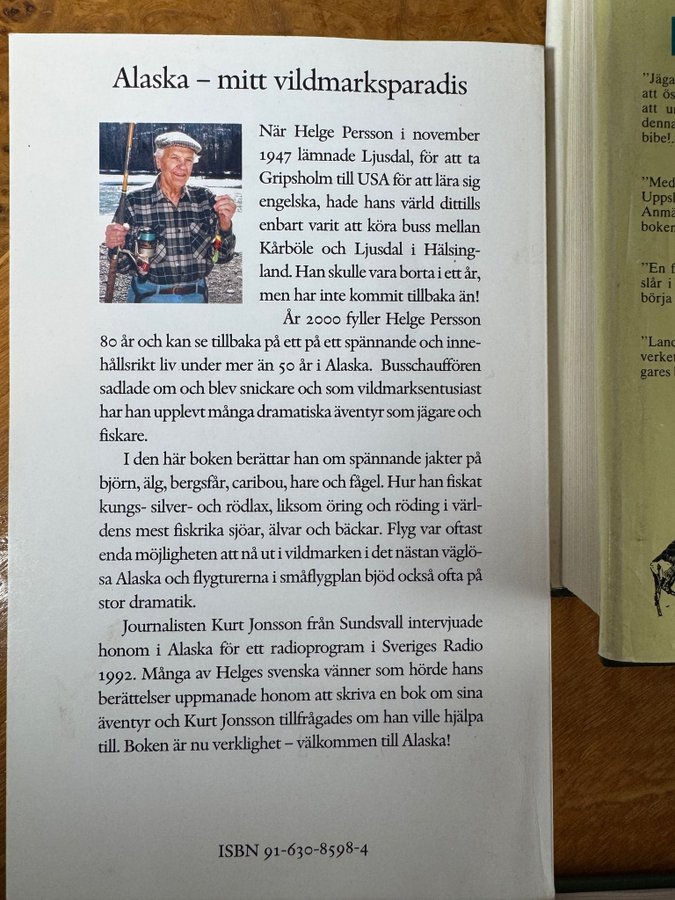 Alaska – mitt vildmarksparadis
När Helge Persson i november
1947 lämnade Ljusdal, för att ta
Gripsholm till USA för att lära sig
engelska, hade hans värld dittills
enbart varit att köra buss mellan
Kårböle och Ljusdal i Hälsing-
land. Han skulle vara borta i ett år,
men har inte kommit tillbaka än!
År 2000 fyller Helge Persson
80 år och kan se tillbaka på ett på ett spännande och inne-
hållsrikt liv under mer än 50 år i Alaska. Busschauffören
sadlade om och blev snickare och som vildmarksentusiast
har han upplevt många dramatiska äventyr som jägare och
fiskare.
I den här boken berättar han om spännande jakter på
björn, älg, bergsfår, caribou, hare och fågel. Hur han fiskat
kungs- silver- och rödlax, liksom öring och röding i värl-
dens mest fiskrika sjöar, älvar och bäckar. Flyg var oftast
enda möjligheten att nå ut i vildmarken i det nästan väglö-
sa Alaska och flygturerna i småflygplan bjöd också ofta på
stor dramatik.
Journalisten Kurt Jonsson från Sundsvall intervjuade
honom i Alaska för ett radioprogram i Sveriges Radio
1992. Många av Helges svenska vänner som hörde hans
berättelser uppmanade honom att skriva en bok om sina
äventyr och Kurt Jonsson tillfrågades om han ville hjälpa
till. Boken är nu verklighet – välkommen till Alaska!
ISBN 91-630-8598-4
"Jäga
att ös
att u
denna
bibel.
"Med
Uppsl
Anmä
boken
"En f
slår i
börja
"Land
verket
gares